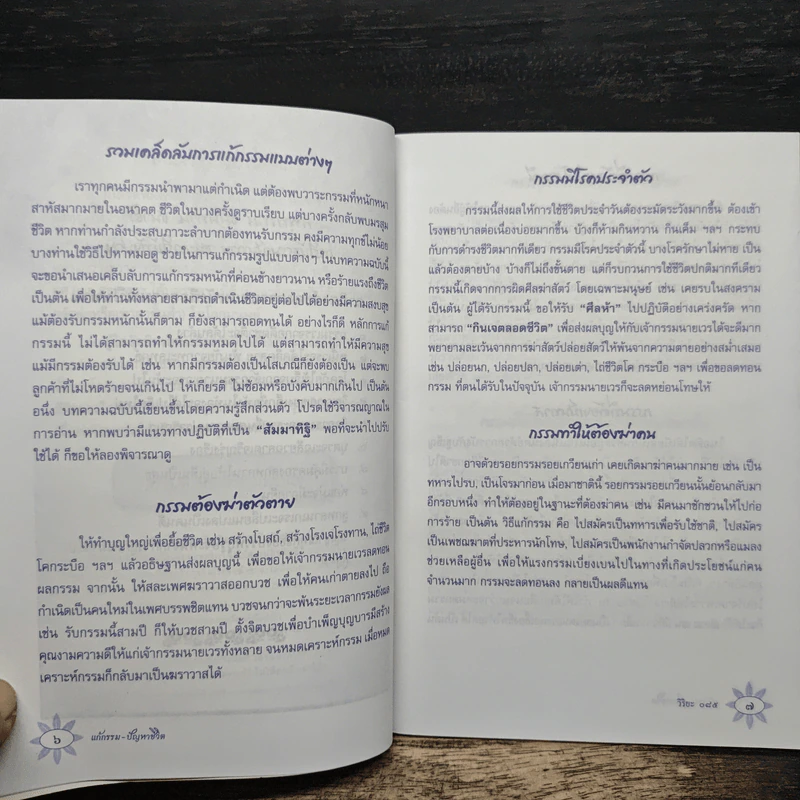 รวมเคล็ดลับการแก้กรรมแบบต่างๆ
เราทุกคนมีกรรมนำพามาแต่กำเนิด แต่ต้องพบวาระกรรมที่หนักหนา
สาหัสมากมายในอนาคต ชีวิตในบางครั้งดูราบเรียบ แต่บางครั้งกลับพบมรสุม
ชีวิต หากท่านกำลังประสบภาวะลำบากต้องทนรับกรรม คงมีความทุกข์ไม่น้อย
บางท่านใช้วิธีไปหาหมอดู ช่วยในการแก้กรรมรูปแบบต่างๆ ในบทความฉบับนี้
จะขอนำเสนอเคล็บลับการแก้กรรมหนักที่ค่อนข้างยาวนาน หรือร้ายแรงถึงชีวิต
เป็นต้น เพื่อให้ท่านทั้งหลายสามารถดำเนินชีวิตอยู่ต่อไปได้อย่างมีความสงบสุข
แม้ต้องรับกรรมหนักนั้นก็ตาม ก็ยังสามารถอดทนได้ อย่างไรก็ดี หลักการแก้
กรรมนี้ ไม่ได้สามารถทำให้กรรมหมดไปได้ แต่สามารถทำให้มีความสุข
แม้มีกรรมต้องรับได้ เช่น หากมีกรรมต้องเป็นโสเภณีก็ยังต้องเป็น แต่จะพบ
ลูกค้าที่ไม่โหดร้ายจนเกินไป ให้เกียรติ ไม่ซ้อมหรือบังคับมากเกินไป เป็นต้น
อนึ่ง บทความฉบับนี้เขียนขึ้นโดยความรู้สึกส่วนตัว โปรดใช้วิจารณญาณใน
การอ่าน หากพบว่ามีแนวทางปฏิบัติที่เป็น “สัมมาทิฐิ” พอที่จะนำไปปรับ
ใช้ได้ ก็ขอให้ลองพิจารณาดู
กรรมต้องฆ่าตัวตาย
ให้ทำบุญใหญ่เพื่อยื้อชีวิต เช่น สร้างโบสถ์, สร้างโรงเจโรงทาน, ไถ่ชีวิต
โคกระบือ ฯลฯ แล้วอธิษฐานส่งผลบุญนี้ เพื่อขอให้เจ้ากรรมนายเวรลดทอน
ผลกรรม จากนั้น ให้สละเพศฆราวาสออกบวช เพื่อให้คนเก่าตายลงไป ถือ
กำเนิดเป็นคนใหม่ในเพศบรรพชิตแทน บวชจนกว่าจะพ้นระยะเวลากรรมยังผล
เช่น รับกรรมนี้สามปี ก็ให้บวชสามปี ตั้งจิตบวชเพื่อบำเพ็ญบุญบารมีสร้าง
คุณงามความดีให้แก่เจ้ากรรมนายเวรทั้งหลาย จนหมดเคราะห์กรรม เมื่อหมด
เคราะห์กรรมก็กลับมาเป็นฆราวาสได้
๖ แก้กรรม-ปัญหาชีวิต
กรรมมีโรคประจำตัว
กรรมนี้ส่งผลให้การใช้ชีวิตประจำวันต้องระมัดระวังมากขึ้น ต้องเข้า
โรงพยาบาลต่อเนื่องบ่อยมากขึ้น บ้างก็ห้ามกินหวาน กินเค็ม ฯลฯ กระทบ
กับการดำรงชีวิตมากทีเดียว กรรมมีโรคประจำตัวนี้ บางโรครักษาไม่หาย เป็น
แล้วต้องตายบ้าง บ้างก็ไม่ถึงขั้นตาย แต่ก็รบกวนการใช้ชีวิตปกติมากทีเดียว
กรรมนี้เกิดจากการผิดศีลฆ่าสัตว์ โดยเฉพาะมนุษย์ เช่น เคยรบในสงคราม
เป็นต้น ผู้ได้รับกรรมนี้ ขอให้รับ “ศีลห้า” ไปปฏิบัติอย่างเคร่งครัด หาก
สามารถ “กินเจตลอดชีวิต” เพื่อส่งผลบุญให้กับเจ้ากรรมนายเวรได้จะดีมาก
พยายามละเว้นจากการฆ่าสัตว์ปล่อยสัตว์ให้พ้นจากความตายอย่างสม่ำเสมอ
เช่น ปล่อยนก, ปล่อยปลา, ปล่อยเต่า, ไถ่ชีวิตโค กระบือ ฯลฯ เพื่อขอลดทอน
กรรม ที่ตนได้รับในปัจจุบัน เจ้ากรรมนายเวรก็จะลดหย่อนโทษให้
กรรมทำให้ต้องฆ่าคน
อาจด้วยรอยกรรมรอยเกวียนเก่า เคยเกิดมาฆ่าคนมากมาย เช่น เป็น
ทหารไปรบ, เป็นโจรมาก่อน เมื่อมาชาตินี้ รอยกรรมรอยเกวียนนั้นย้อนกลับมา
อีกรอบหนึ่ง ทำให้ต้องอยู่ในฐานะที่ต้องฆ่าคน เช่น มีคนมาชักชวนให้ไปก่อ
การร้าย เป็นต้น วิธีแก้กรรม คือ ไปสมัครเป็นทหารเพื่อรับใช้ชาติ, ไปสมัคร
เป็นเพชฌฆาตที่ประหารนักโทษ, ไปสมัครเป็นพนักงานกำจัดปลวกหรือแมลง
ช่วยเหลือผู้อื่น เพื่อให้แรงกรรมเบี่ยงเบนไปในทางที่เกิดประโยชน์แก่คน
จำนวนมาก กรรมจะลดทอนลง กลายเป็นผลดีแทน
วิริยะ ๐๘๕ ๗